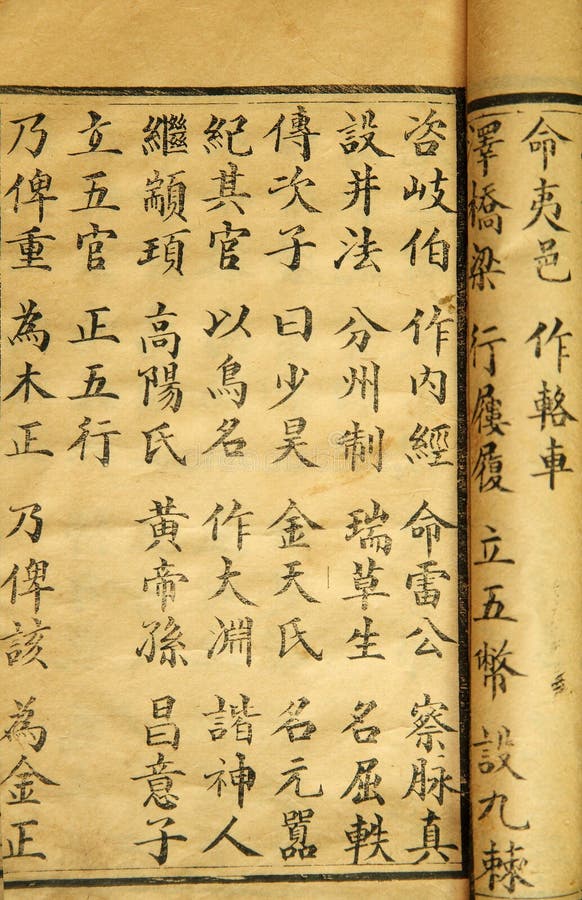 命夷邑 作輅車
澤橋梁 行屨履 立五幣 設九棘
咨岐伯 作內經 命雷公 察脉真
設井法 分州制 瑞草生 名屈軼
傳次子 曰少昊 金天氏 名元囂
紀其官 以鳥名 作大淵 諧神人
繼顓頊 高陽氏 黃帝孫 昌意子
立五官 正五行
乃俾重 為木正 乃俾該 為金正